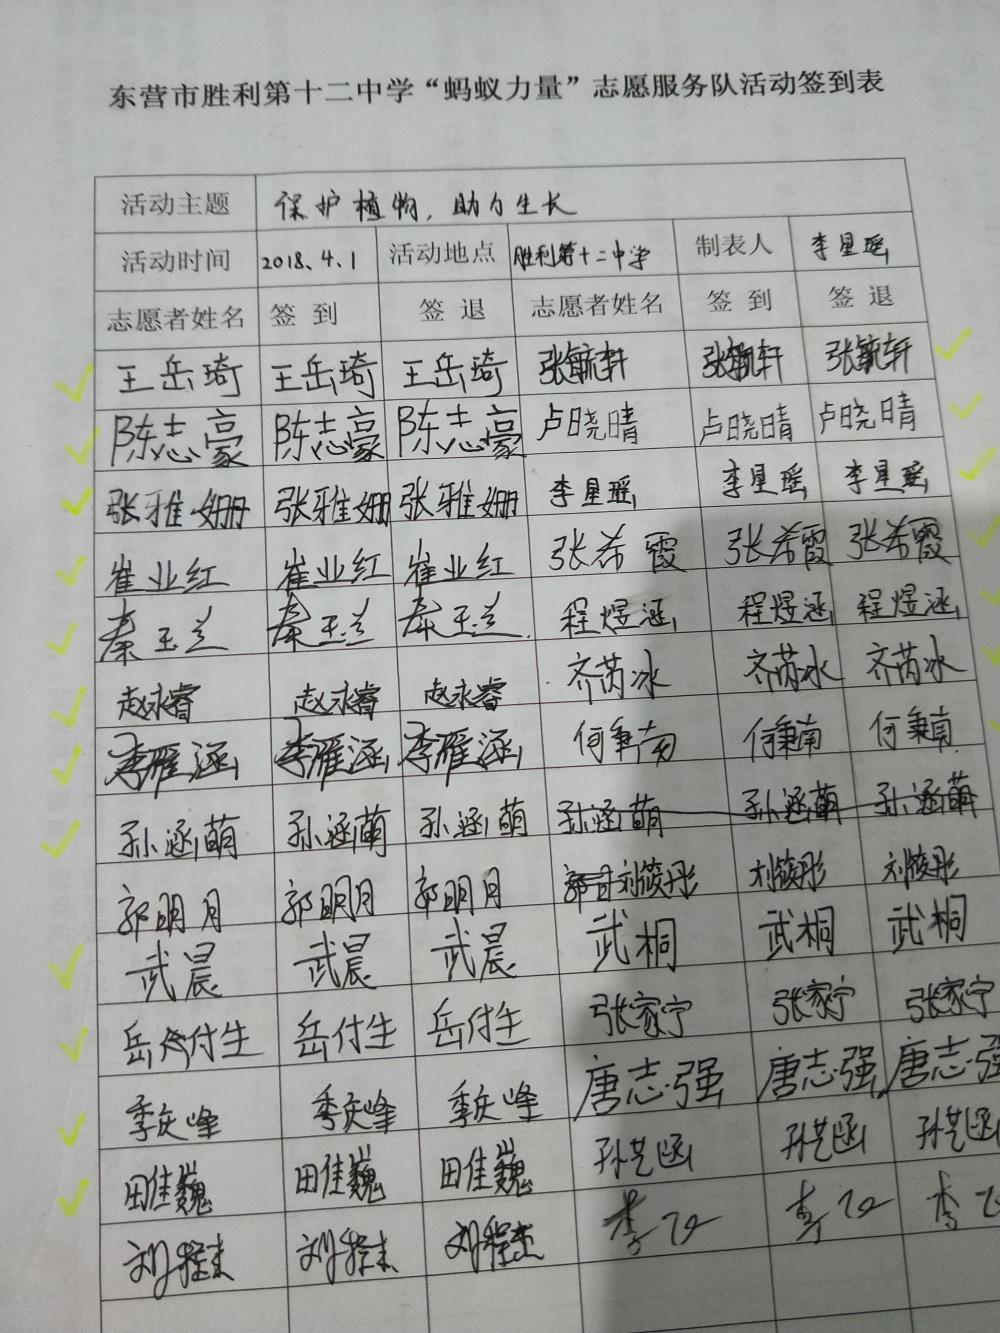 东营市胜利第十二中学“蚂蚁力量”志愿服务队活动签到表
活动主题 保护植物，助力生长
活动时间 2018、4、1 活动地点 胜利第十二中学 制表人 李星瑶
志愿者姓名 签 到 签 退 志愿者姓名 签 到 签 退
王岳琦 王岳琦 王岳琦 张毓轩 张毓轩 张毓轩
陈志豪 陈志豪 陈志豪 卢晓晴 卢晓晴 卢晓晴
张雅姗 张雅姗 张雅姗 李星瑶 李星瑶 李星瑶
崔业红 崔业红 崔业红 张希霞 张希霞 张希霞
秦玉兰 秦玉兰 秦玉兰 程煜涵 程煜涵 程煜涵
赵永睿 赵永睿 赵永睿 齐芮冰 齐芮冰 齐芮冰
李雁涵 李雁涵 李雁涵 何秉南 何秉南 何秉南
孙涵萌 孙涵萌 孙涵萌 孙涵萌 孙涵萌 孙涵萌
郭明月 郭明月 郭明月 刘筱彤 刘筱彤 刘筱彤
武晨 武晨 武晨 武桐 武桐 武桐
岳付生 岳付生 岳付生 张家宁 张家宁 张家宁
季庆峰 季庆峰 季庆峰 唐志强 唐志强 唐志强
田佳巍 田佳巍 田佳巍 孙艺函 孙艺函 孙艺函
刘程杰 刘程杰 刘程杰